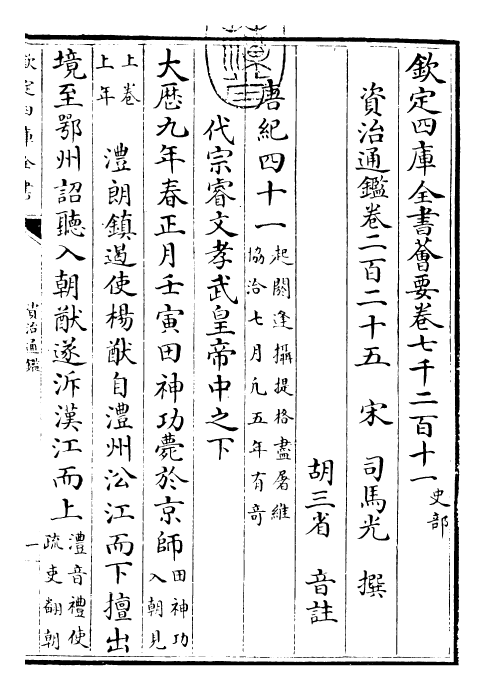 欽定四庫全書薈要卷七千二百十一史部
資治通鑑卷二百二十五　宋　司馬光　撰
胡三省　音註
唐紀四十一起閼逢攝提格盡屠維
協洽七月凡五年有奇
代宗睿文孝武皇帝中之下
大厯九年春正月壬寅田神功薨於京師田神功
入朝見
上卷
上年　澧朗鎮遏使楊猷自澧州沿江而下擅出
境至鄂州詔聽入朝猷遂泝漢江而上澧音禮使
疏吏翻朝
欽定四庫全書
資治通鑑
一